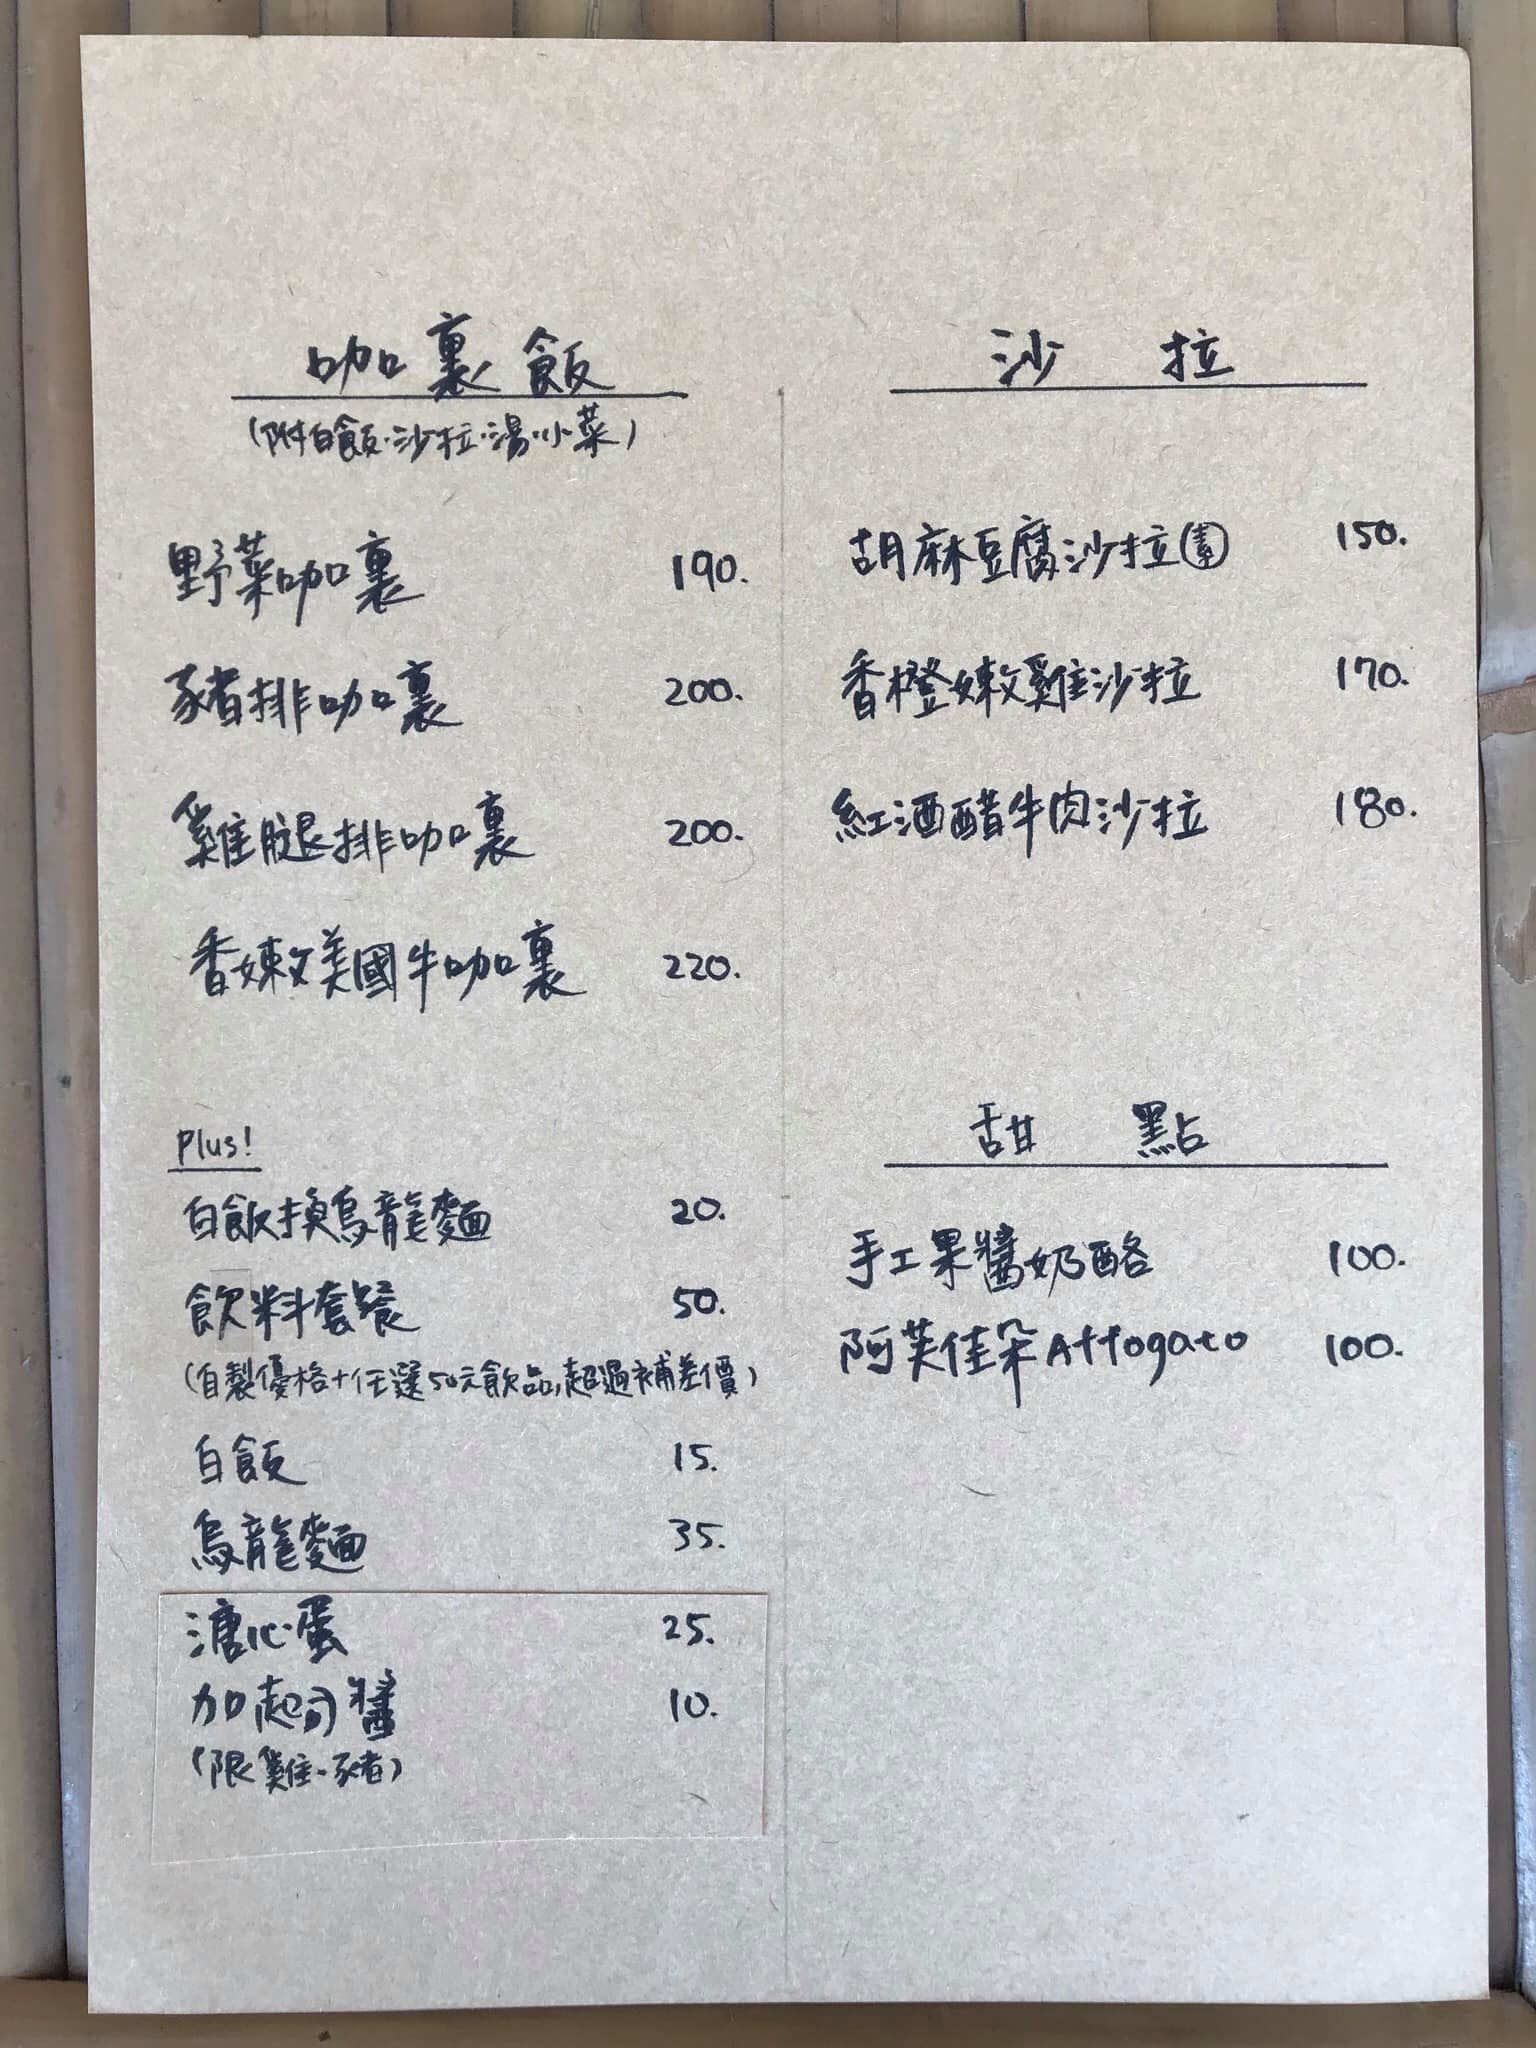 咖裏飯
(附白飯·沙拉·湯·小菜)
野菜咖裏 190.
豬排咖裏 200.
雞腿排咖裏 200.
香嫩美國牛咖裏 220.
Plus!
白飯換烏龍麵 20.
飲料套餐 50.
(自製優格+任選50元飲品,超過補差價)
白飯 15.
烏龍麵 35.
溏心蛋 25.
加起司醬 10.
(限雞·豬)
沙拉
胡麻豆腐沙拉素 150.
香橙嫩雞沙拉 170.
紅酒醋牛肉沙拉 180.
甜點
手工果醬奶酪 100.
阿芙佳朵Affogato 100.